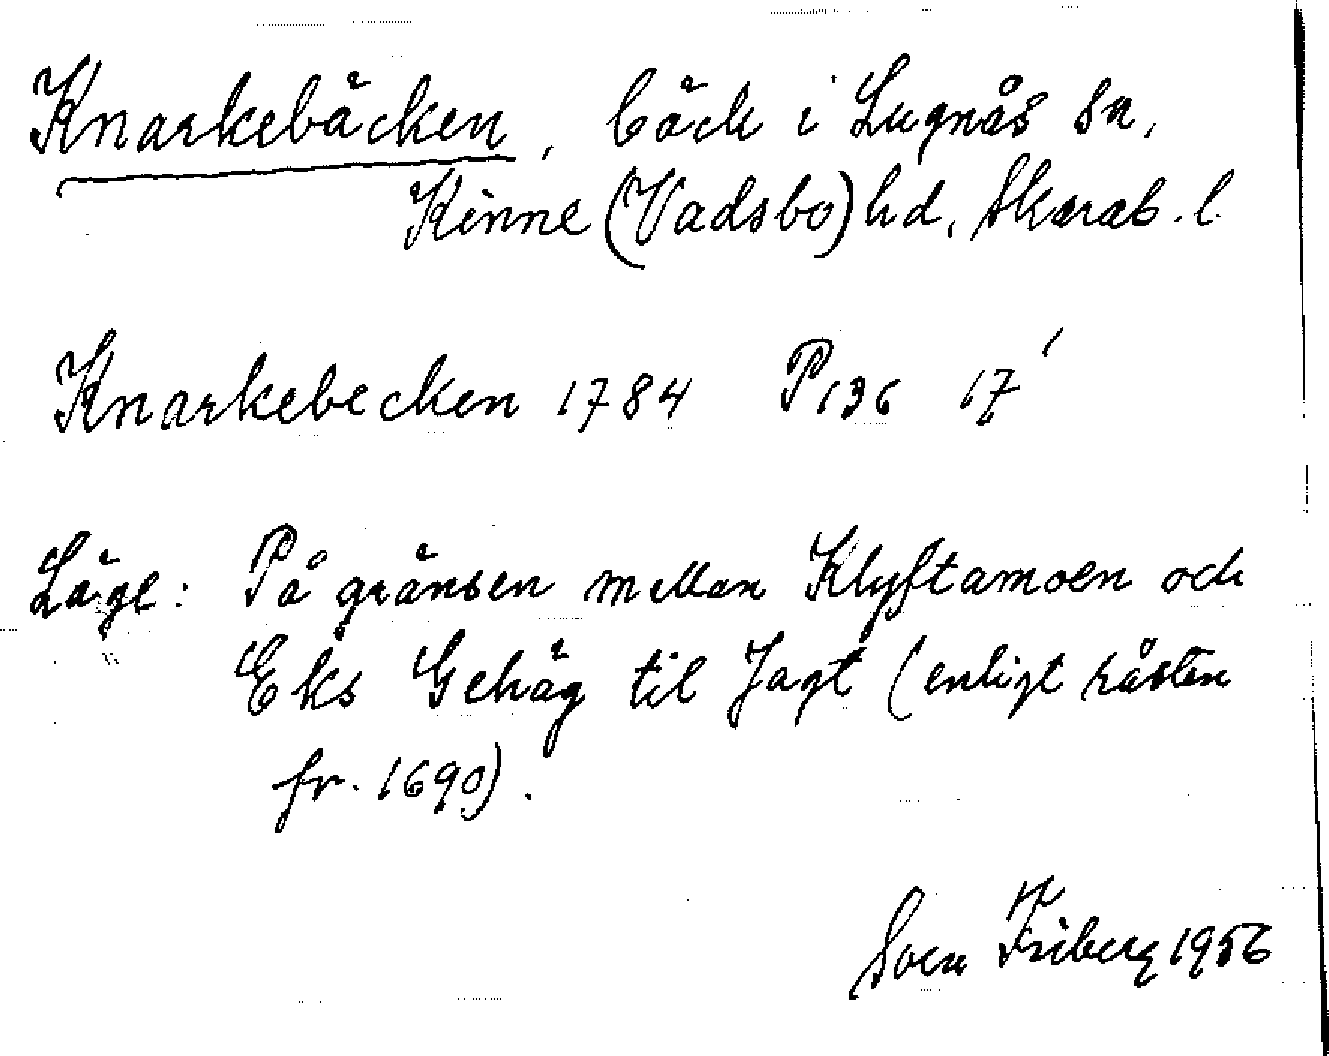 Knarkebäcken, bäck i Lugnås sn,
Kinne (Vadsbo) hd, Skarab. l.
Knarkebecken 1784 P136 17'
Läge: På gränsen mellan Klyftamoen och
Eks Gehäg til Jagt (enligt råsten
fr. 1690).
Sven Friberg 1956